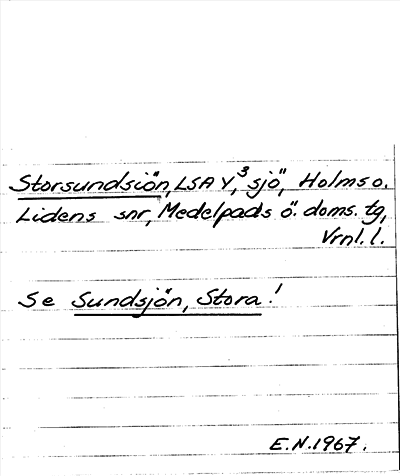 Storsundsiön, LSA Y,³ sjö, Holms o.
Lidens snr, Medelpads ö. doms. tg,
Vrnl. l.
Se Sundsjön, Stora!
E.N. 1967.